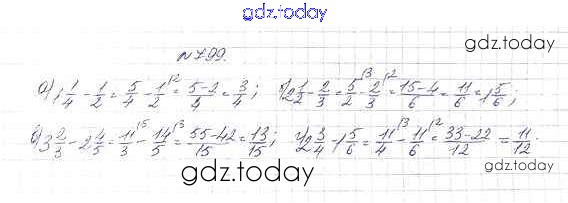 gdz.today
gdz.today
№799.
а) 1 1/4 - 1/2 = 5/4 - 1/2 |2 = 5-2/4 = 3/4; б) 2 1/2 - 2/3 = 5/2 |3 - 2/3 |2 = 15-4/6 = 11/6 = 1 5/6;
в) 3 2/3 - 2 4/5 = 11/3 |5 - 14/5 |3 = 55-42/15 = 13/15; г) 2 3/4 - 1 5/6 = 11/4 |3 - 11/6 |2 = 33-22/12 = 11/12.
gdz.today
gdz.today